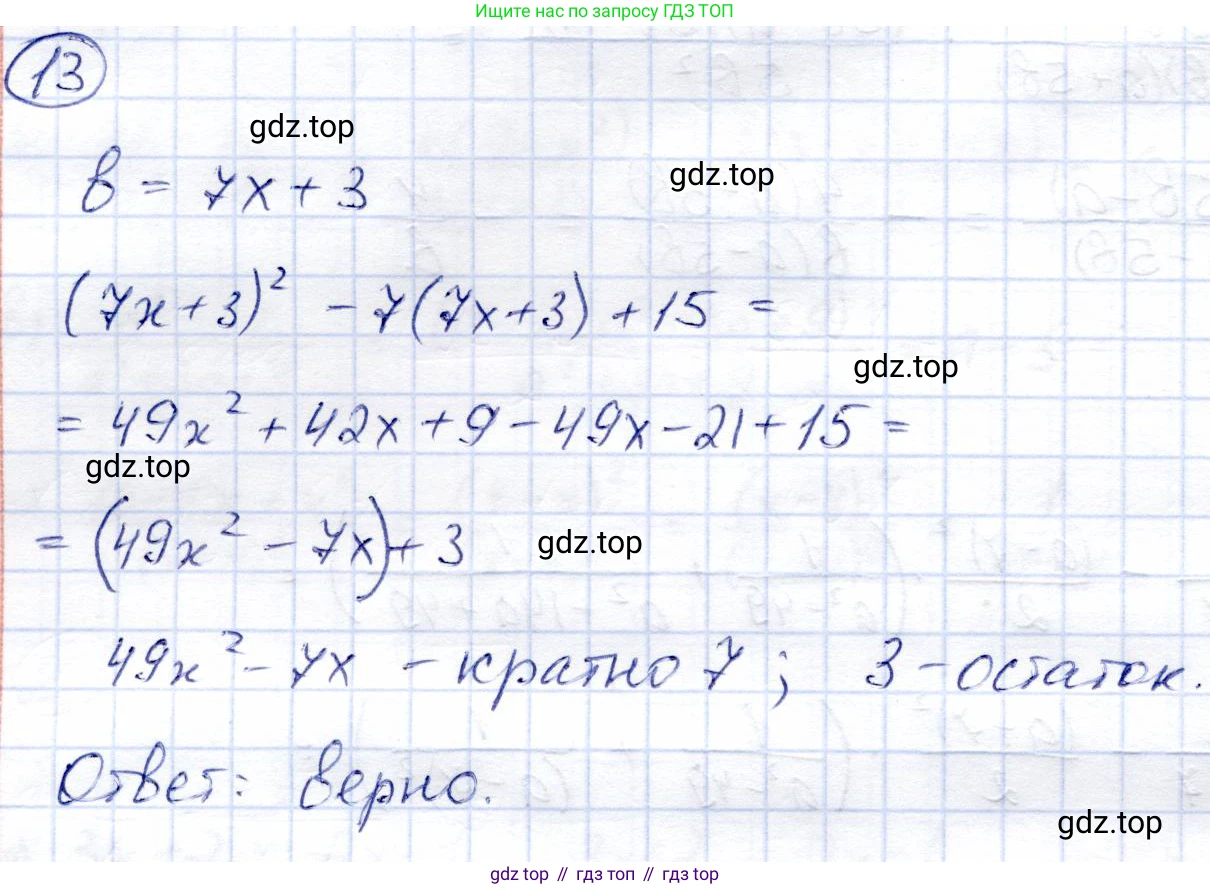 Ищите нас по запросу ГДЗ ТОП
13
gdz.top
в = 7x + 3
gdz.top
(7x+3)² - 7(7x+3) + 15 =
gdz.top
= 49x² + 42x + 9 - 49x - 21 + 15 =
gdz.top
= (49x² - 7x) + 3
gdz.top
49x² - 7x - кратно 7 ; 3 - остаток.
Ответ: верно.
gdz.top
gdz top // гдз топ // gdz top